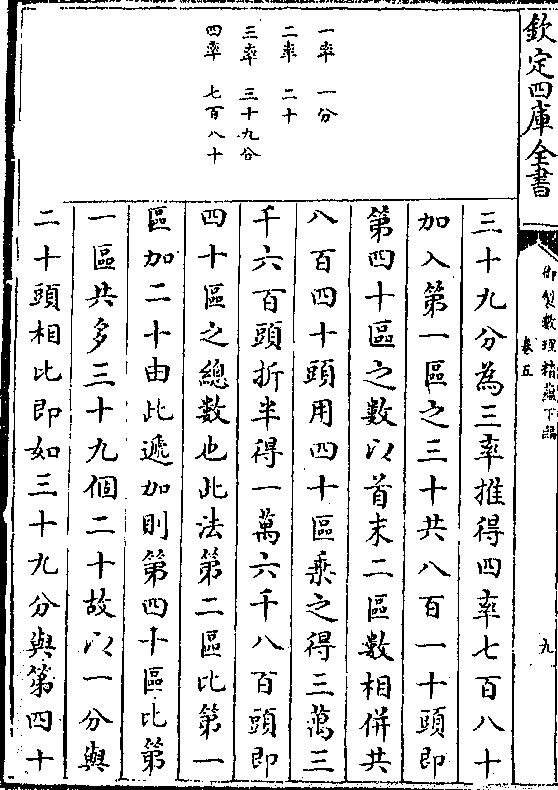 欽定四庫全書
御製數理精蘊下編
卷五
九
一率 一分
二率 二十
三率 三十九分
四率 七百八十
三十九分為三率推得四率七百八十
加入第一區之三十共八百一十頭即
第四十區之數以首末二區數相併共
八百四十頭用四十區乗之得三萬三
千六百頭折半得一萬六千八百頭即
四十區之總數也此法第二區比第一
區加二十由此遞加則第四十區比第
一區共多三十九個二十故以一分與
二十頭相比即如三十九分與第四十